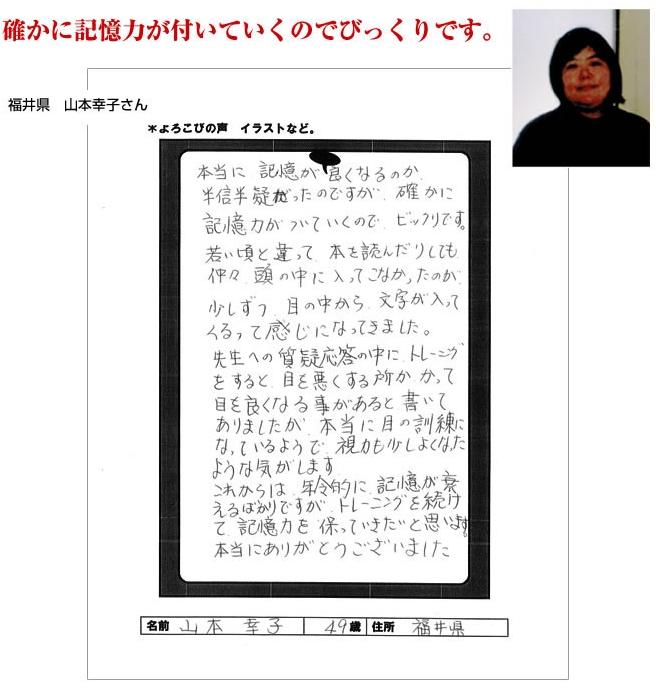 確かに記憶力が付いていくのでびっくりです。
福井県　山本幸子さん
＊よろこびの声　イラストなど。
本当に 記憶が良くなるのか、
半信半疑だったのですが、確かに
記憶力がついていくので、ビックリです。
若い頃と違って、本を読んだりしても
仲々、頭の中に入ってこなかったのが
少しずつ、目の中から、文字が入って
くるって感じになってきました。
先生への質疑応答の中に、トレーニング
をすると、目を悪くする所か、かって
目を良くなる事があると書いて
ありましたが、本当に目の訓練に
なっているようで、視力も少しよくなった
ような気がします
これからは、年令的に、記憶が衰
えるばかりですが、トレーニングを続け
て、記憶力を、保っていきたいと思います。
本当にありがとうございました
名前 山本 幸子 49歳 住所 福井県